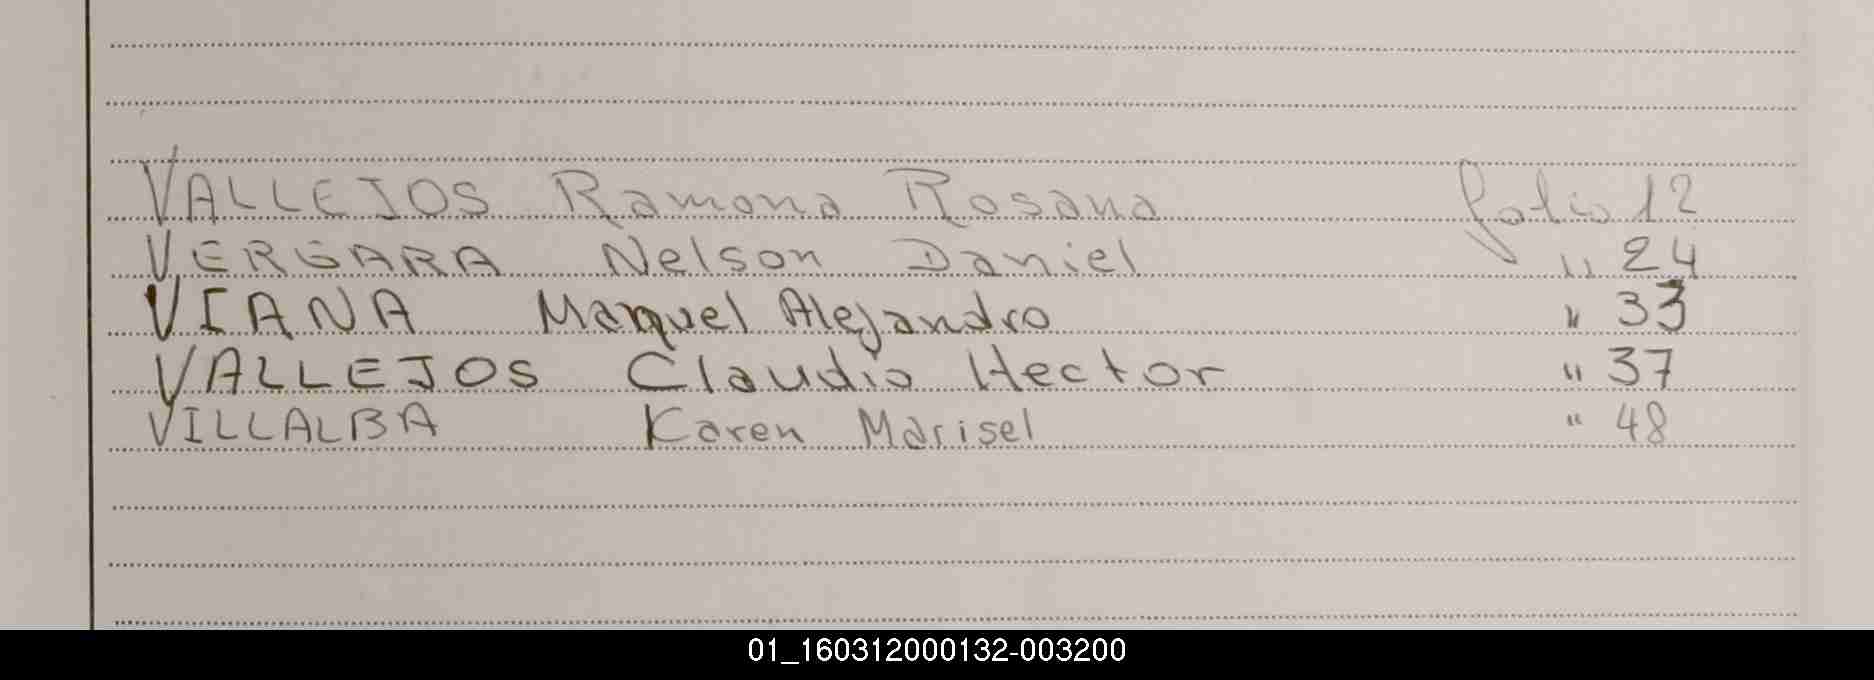 VALLEJOS Ramona Rosana folio 12
VERGARA Nelson Daniel " 24
VIANA Manquel Alejandro " 33
VALLEJOS Claudio Hector " 37
VILLALBA Karen Marisel " 48
01_160312000132-003200